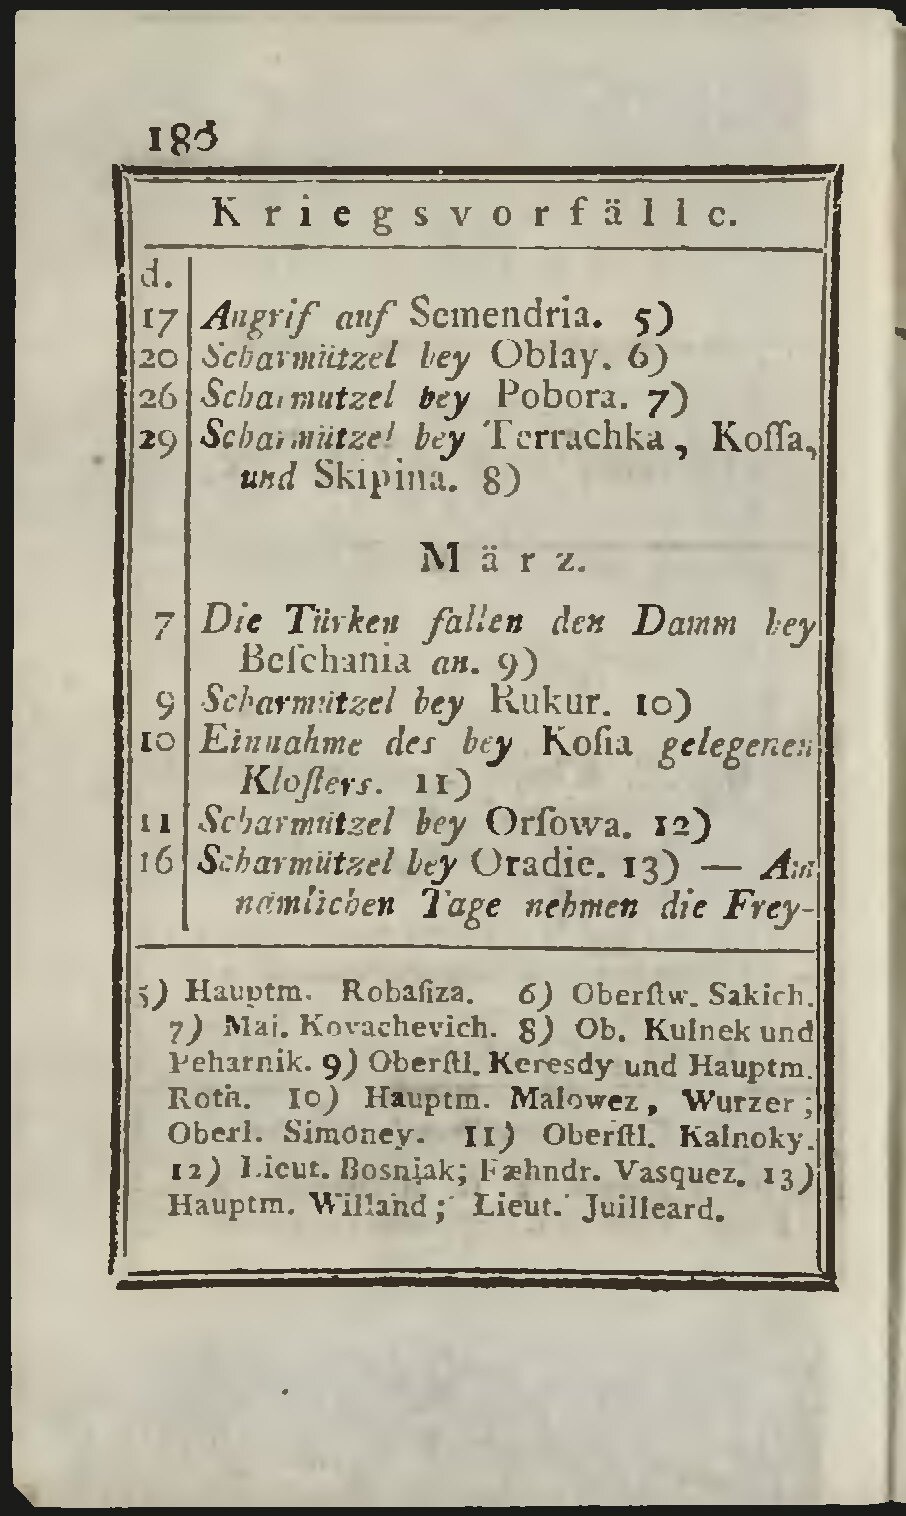 186
Kriegsvorfälle.
d.
17 Angrif auf Semendria. 5)
20 Scharmützel bey Oblay. 6)
26 Scharmutzel bey Pobora. 7)
29 Scharmützel bey Terrachka, Koſſa,
und Skipina. 8)
März.
7 Die Türken fallen den Damm bey
Beſchania an. 9)
9 Scharmützel bey Rukur. 10)
10 Einnahme des bey Koſia gelegenen
Kloſters. 11)
11 Scharmützel bey Orſowa. 12)
16 Scharmützel bey Oradie. 13) — Am
nämlichen Tage nehmen die Frey-
5) Hauptm. Robaſiza. 6) Oberſtw. Sakich.
7) Maj. Kovachevich. 8) Ob. Kulnek und
Peharnik. 9) Oberſtl. Keresdy und Hauptm.
Roth. 10) Hauptm. Malowez, Wurzer;
Oberl. Simoney. 11) Oberſtl. Kalnoky.
12) Lieut. Bosnjak; Fæhndr. Vasquez. 13)
Hauptm. Willand; Lieut. Juilleard.